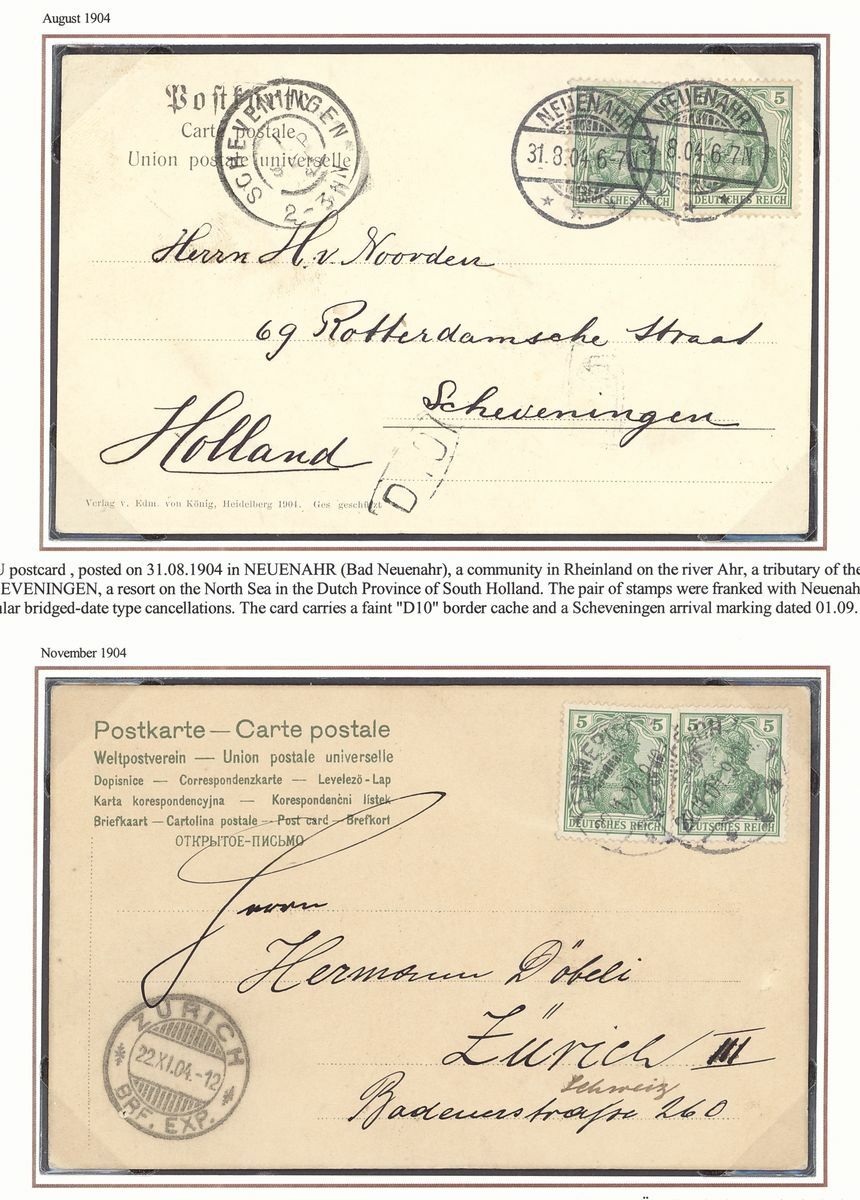 August 1904
Postkarte
Carte postale
Union postale universelle
SCHEVENINGEN
2-3 N
NEUENAHR
31.8.04.6-7N
NEUENAHR
8.04.6-7N
5
DEUTSCHES REICH
DEUTSCHES REICH
Herrn H. v. Noorden
69 Rotterdamsche Straat
Scheveningen
Holland
D
Verlag v. Edm. von König, Heidelberg 1904. Ges geschützt
U postcard , posted on 31.08.1904 in NEUENAHR (Bad Neuenahr), a community in Rheinland on the river Ahr, a tributary of the
EVENINGEN, a resort on the North Sea in the Dutch Province of South Holland. The pair of stamps were franked with Neuenah
ular bridged-date type cancellations. The card carries a faint "D10" border cache and a Scheveningen arrival marking dated 01.09.
November 1904
Postkarte — Carte postale
Weltpostverein — Union postale universelle
Dopisnice — Correspondenzkarte — Levelező-Lap
Karta korespondencyjna — Korespondenční lístek
Briefkaart — Cartolina postale — Post card — Brefkort
ОТКРЫТОЕ-ПИСЬМО
5 5
5 5
DEUTSCHES REICH
DEUTSCHES REICH
Herrn
Hermann Döbeli
Zürich III
Schweiz
Badenerstraße 260
ZÜRICH
22.XI.04.-12
BRF. EXP.